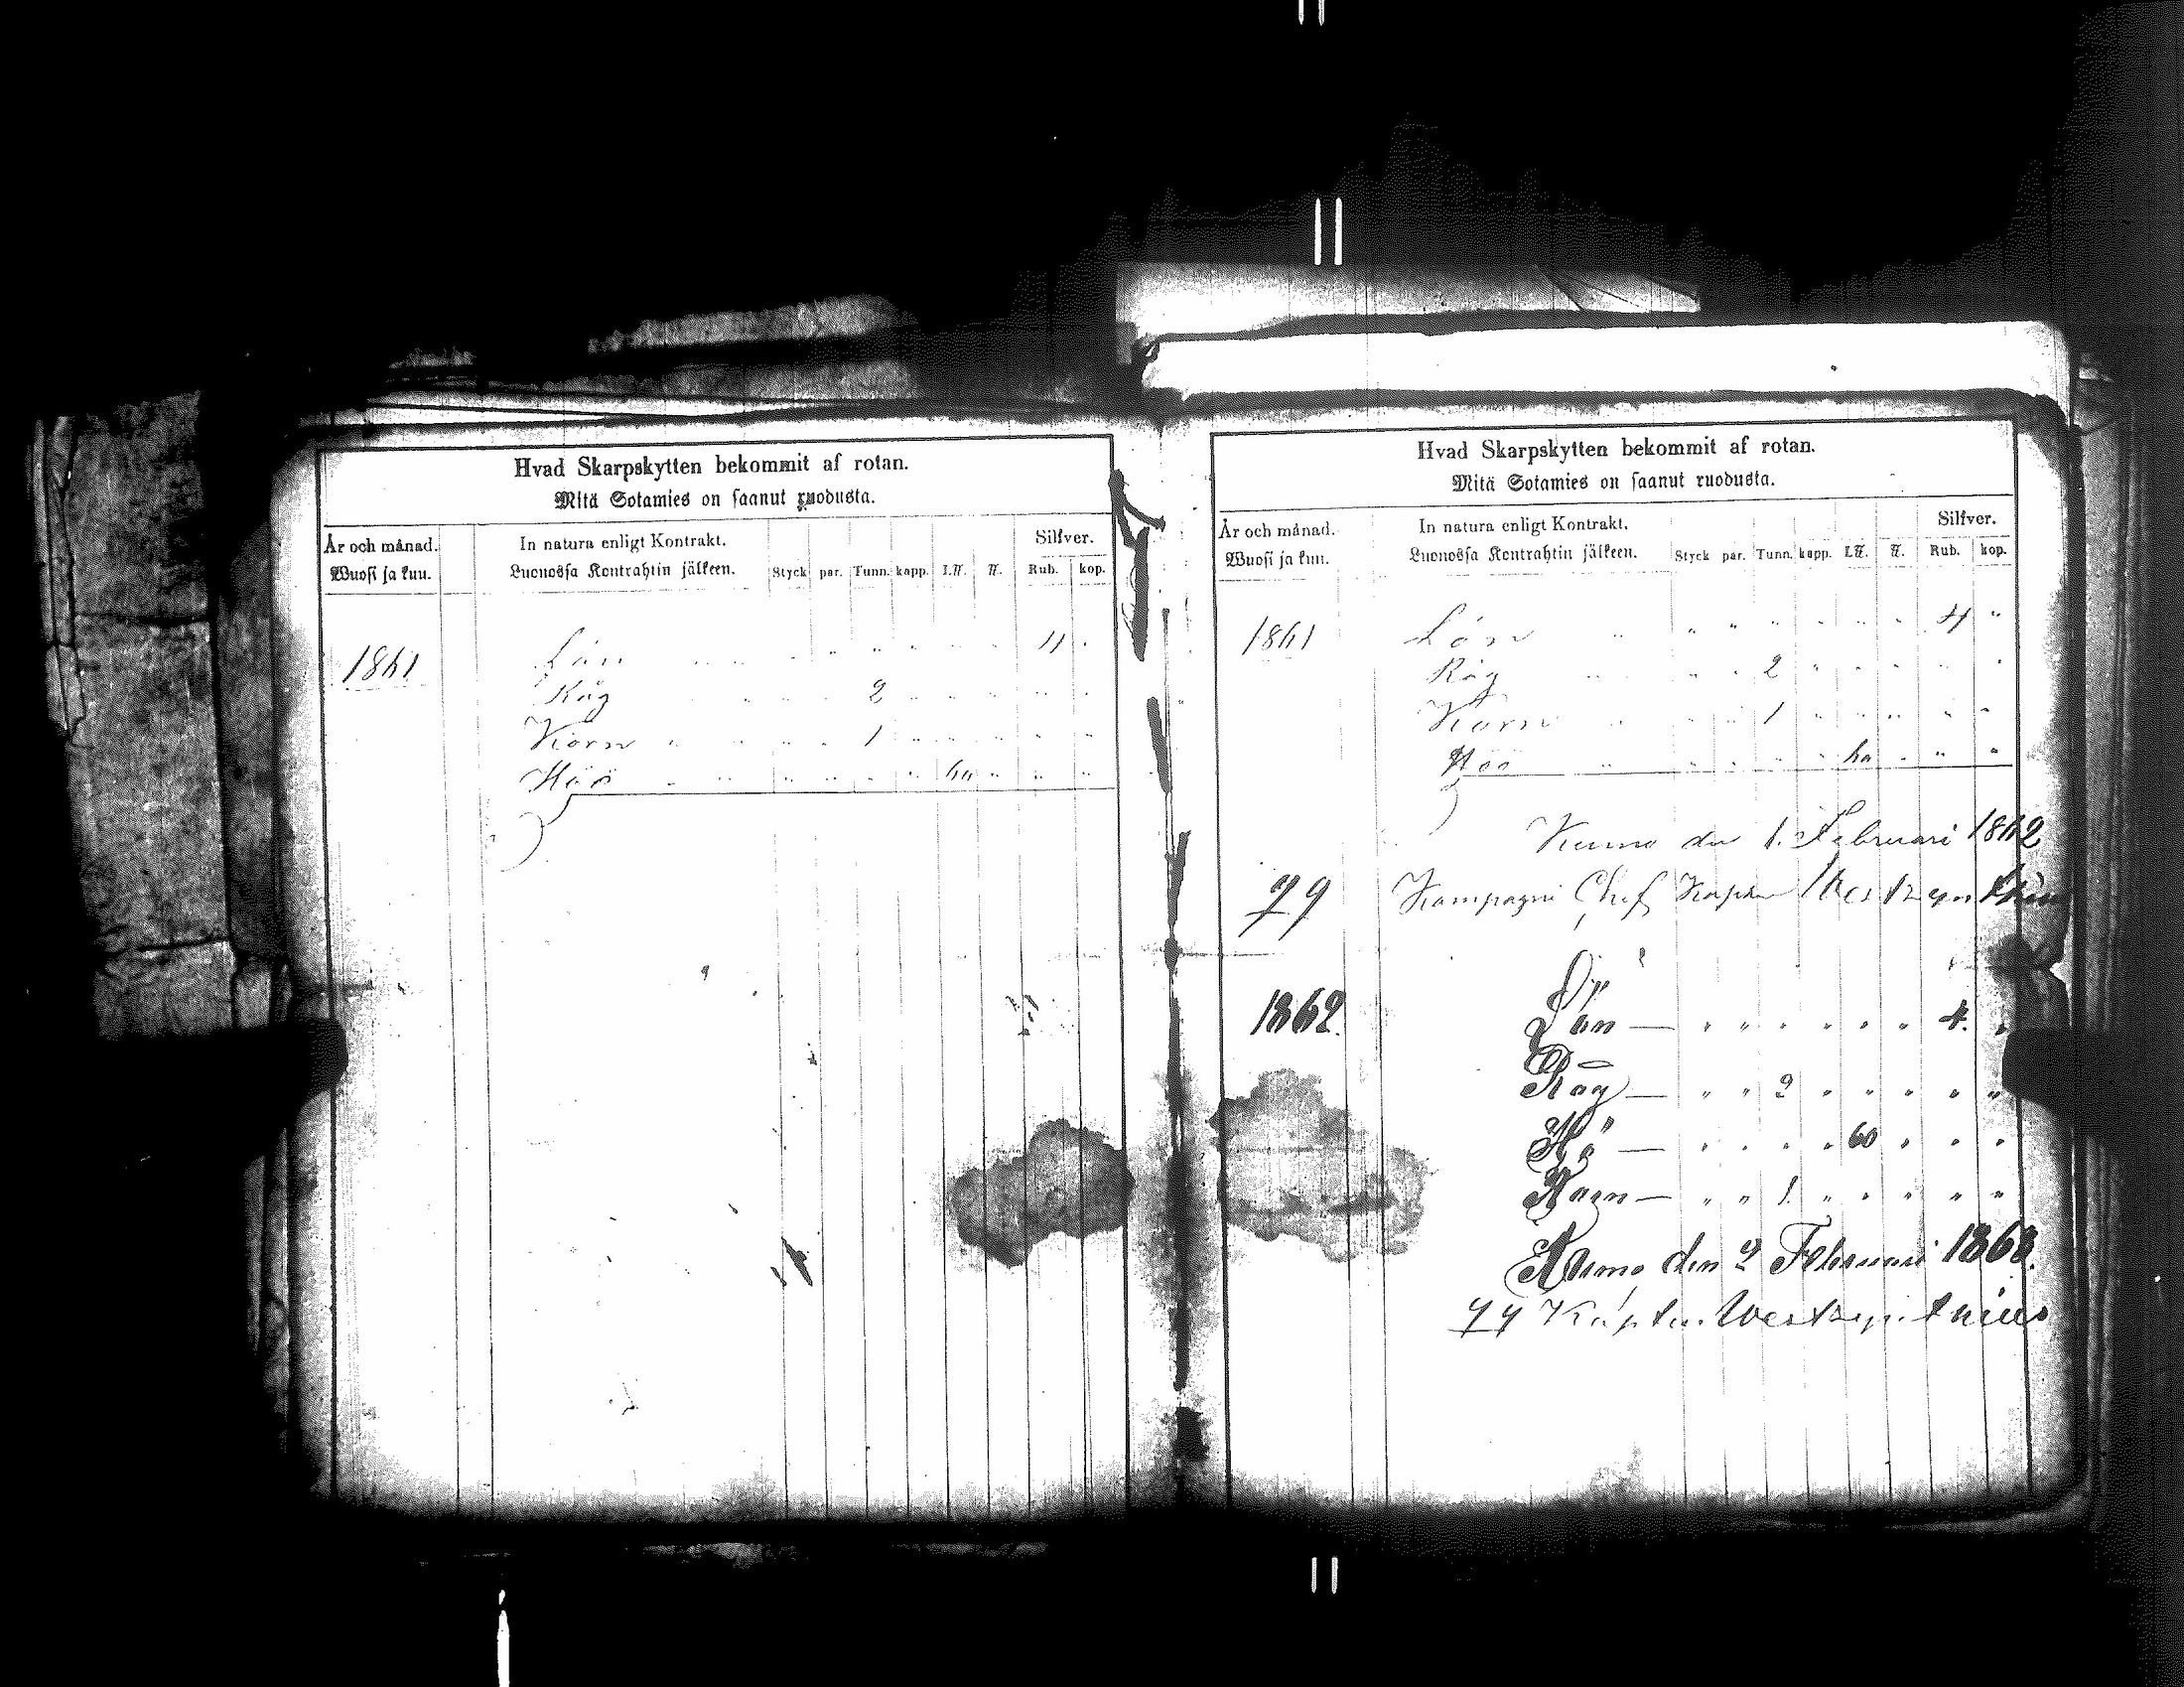 Hvad Skarpskytten bekommit af rotan.
Mitä Sotamies on saanut ruodusta.
År och månad. In natura enligt Kontrakt. Silfver.
Wuosi ja kuu. Luonossa Kontrahtin jälkeen. Styck par. Tunn. kapp. L℔. ℔. Rub. kop.
1861 Lön " " " " " " " 4 "
Råg " " " 2 " " " " "
Korn " " " 1 " " " " "
Höö " " " " " 60 " " "
Hvad Skarpskytten bekommit af rotan.
Mitä Sotamies on saanut ruodusta.
År och månad. In natura enligt Kontrakt. Silfver.
Wuosi ja kuu. Luonossa Kontrahtin jälkeen. Styck par. Tunn. kapp. L℔. ℔. Rub. kop.
1861 Lön " " " " " " " 4 "
Råg " " " 2 " " " " "
Korn " " " 1 " " " " "
Höö " " " " " 60 " " "
Kumo den 1. Februari 1862
Kompagni Chef
1862. Lön — " " " " " " 4. "
Råg — " " 2 " " " " "
Hö — " " " " 60 " " "
Korn — " " 1. " " " " "
Kumo den 2 Februari